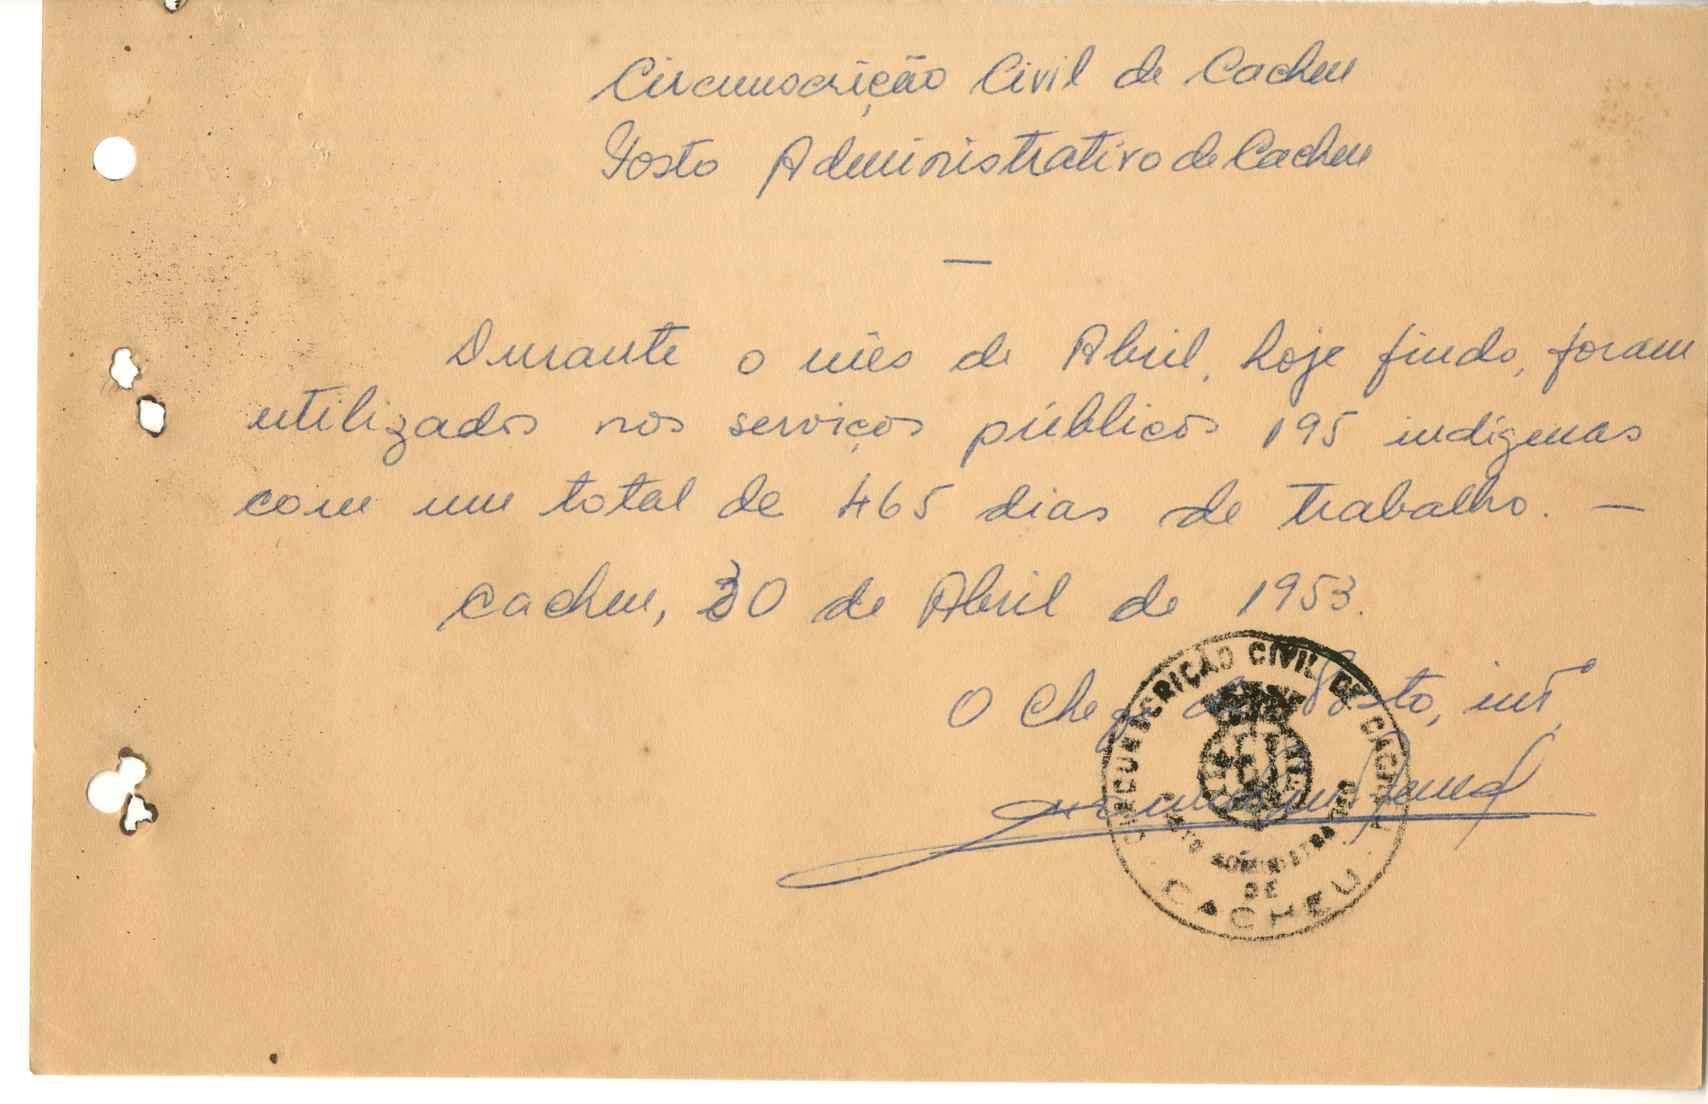 Circunscrição Civil de Cacheu
Posto Administrativo de Cacheu
—
Durante o mês de Abril, hoje findo, foram
utilizados nos serviços públicos 195 indígenas
com um total de 465 dias de trabalho. —
Cacheu, 30 de Abril de 1953.
O Chefe do Posto, intº,
CIRCUNSCRIÇÃO CIVIL DE CACHEU
POSTO ADMINISTRATIVO
DE
CACHEU